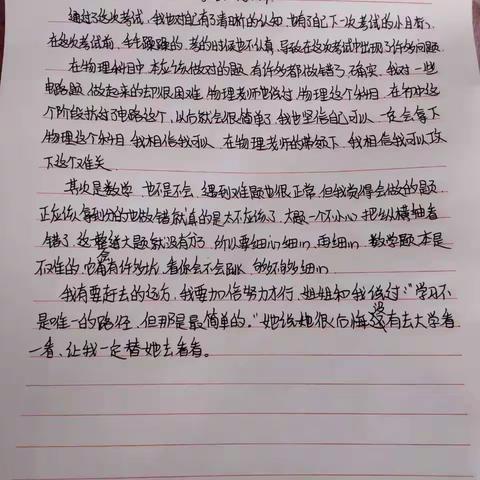 通过了这次考试，我也对自己有了清晰的认知，也有了自己下一次考试的小目标，
在这次考试前，毛毛躁躁的，考的时候也不认真，导致在这次考试中出现了许多问题。
在物理科目中，本应该做对的题，有许多都做错了，确实，我对一些
电路题，做起来的却很困难，物理老师也说过，物理这个科目，在初中这
个阶段扳过了电路这个，以后就会很简单了，我也坚信自己可以一定会拿下
物理这个科目，我相信我可以，在物理老师的带领下，我相信我可以攻
下这个难关。
其次是数学，也不是不会，遇到难题也很正常，但我觉得会做的题，
正应该拿到分的也做错就真的是太不应该了，大题一个不小心，把纵横轴看
错了，这整道大题就没有分了，所以要细心细心，再细心，数学题本是
不难的，也会有许多坑，看你会不会跳，够不够细心。
我有要赶去的远方，我要加倍努力才行，姐姐和我说过："学习不
是唯一的路径，但那是最简单的。"她说她很后悔没有去大学看
一看、让我一定替她去看看。